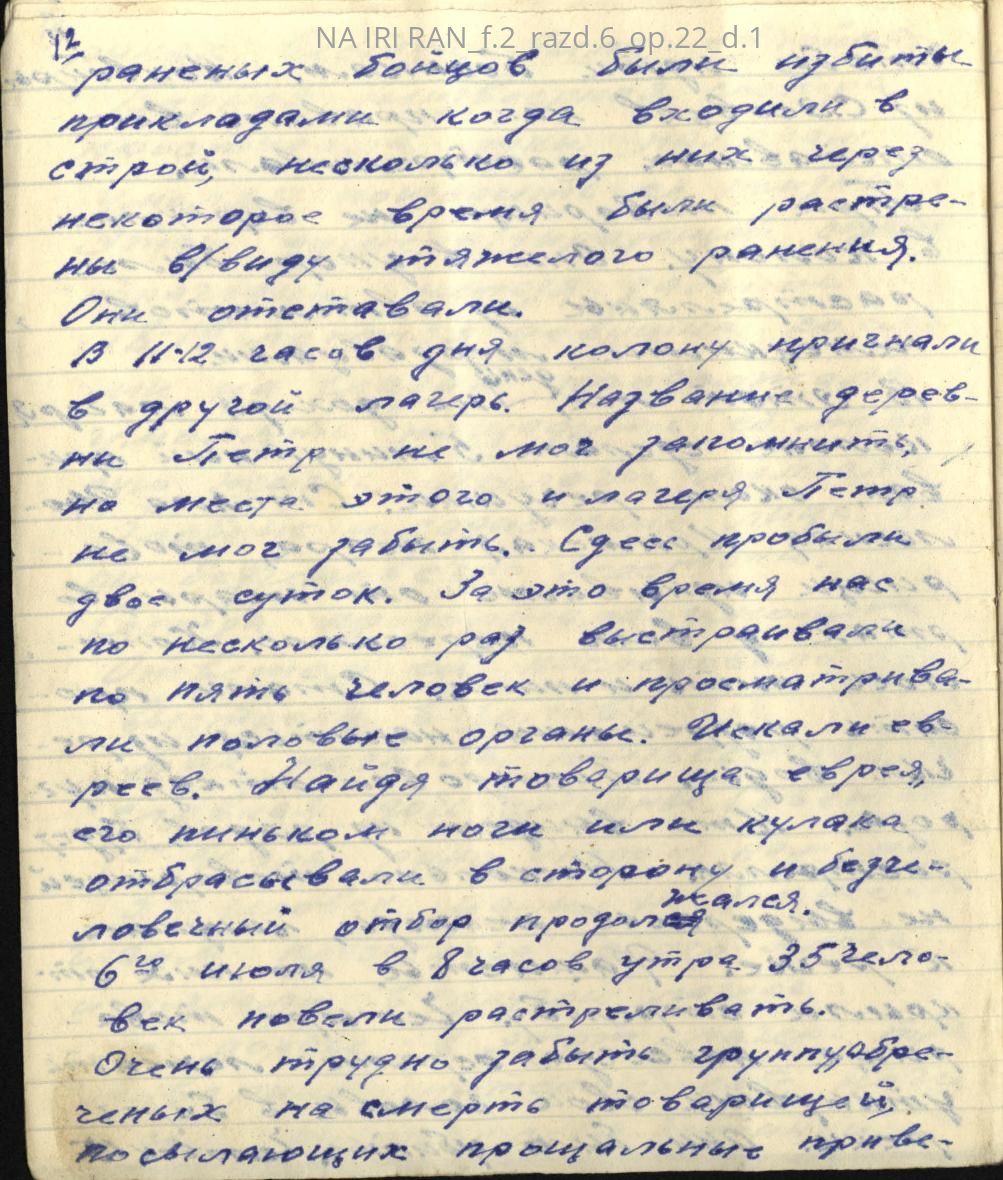 NA IRI RAN_f.2_razd.6_op.22_d.1
12
раненых бойцов были избиты
прикладами когда входили в
строй, несколько из них через
некоторое время были растре-
ны в/виду тяжелого ранения.
Они отставали.
В 11-12 часов дня колону пригнали
в другой лагерь. Название дерев-
ни Петр не мог запомнить,
но места этого и лагеря Петр
не мог забыть. Сдесь пробыли
двое суток. За это время нас
по несколько раз выстраивали
по пять человек и просматрива-
ли половые органы. Искали ев-
реев. Найдя товарища еврея,
его пиньком ноги или кулака
отбрасывали в сторону и безче-
ловечный отбор продолжался.
6го июля в 8 часов утра 35 чело-
век повели растреливать.
Очень трудно забыть группу обре-
ченых на смерть товарищей,
посылающих прощальные приве-